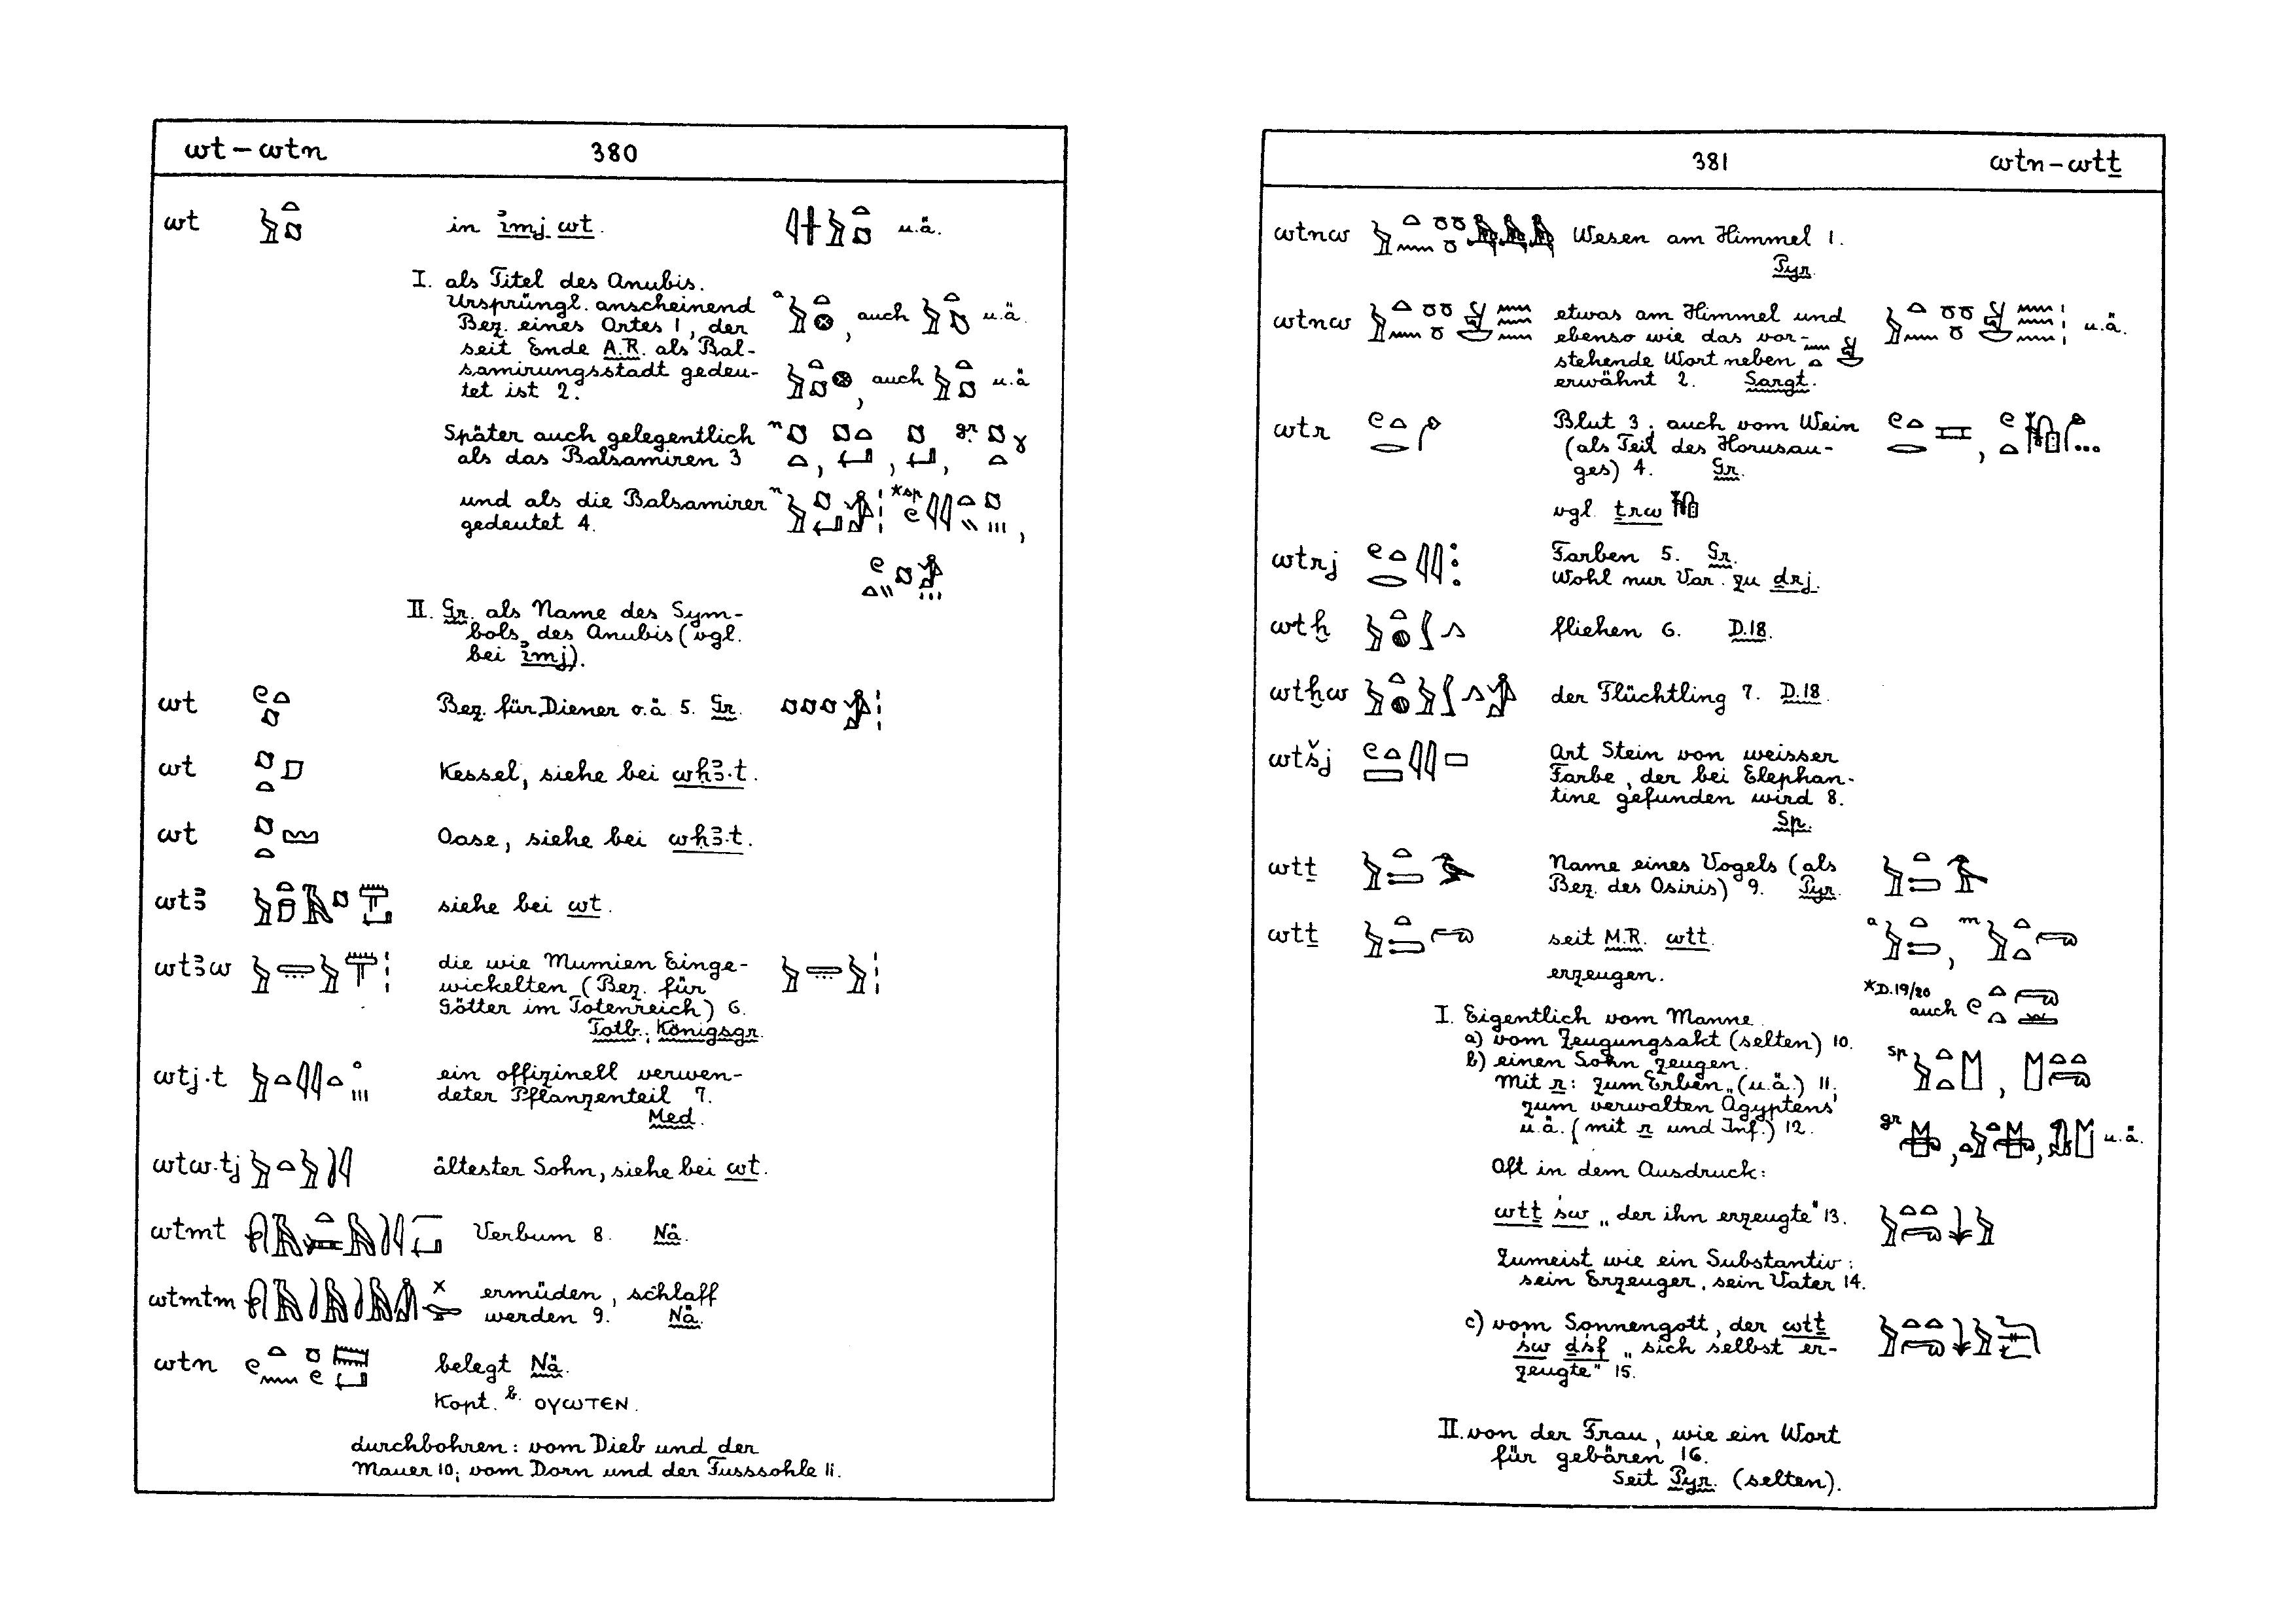 wt – wtn 380
wt in ꞽmj wt. u.ä.
I. als Titel des Anubis.
Ursprüngl. anscheinend
Bez. eines Ortes 1, der
seit Ende A.R. als Bal-
samirungsstadt gedeu-
tet ist 2.
a , auch u.ä.
, auch u.ä
Später auch gelegentlich
als das Balsamiren 3
n , , , gr. γ
und als die Balsamirer
gedeutet 4.
n *sp ,
II. Gr. als Name des Sym-
bols des Anubis (vgl.
bei ꞽmj).
wt Bez. für Diener o.ä 5. Gr.
wt Kessel, siehe bei wḥꜣ·t.
wt Oase, siehe bei wḥꜣ·t.
wtꜣ siehe bei wt.
wtꜣw die wie Mumien Einge-
wickelten (Bez. für
Götter im Totenreich) 6.
Totb.; Königsgr.
wtj·t ein offizinell verwen-
deter Pflanzenteil 7.
Med.
wtw·tj ältester Sohn, siehe bei wt.
wtmt Verbum 8. Nä.
wtmtm ermüden, schlaff
werden 9. Nä.
wtn belegt Nä.
Kopt. b. ⲟⲩⲱⲧⲉⲛ.
durchbohren: vom Dieb und der
Mauer 10; vom Dorn und der Fusssohle 11.
381 wtn – wtṯ
wtnw Wesen am Himmel 1.
Pyr.
wtnw etwas am Himmel und
ebenso wie das vor-
stehende Wort neben
erwähnt 2. Sargt.
u.ä.
wtr Blut 3; auch vom Wein
(als Teil des Horusau-
ges) 4. Gr.
,
vgl. ṯrw
wtrj Farben 5. Gr.
Wohl nur Var. zu drj.
wtḫ fliehen 6. D.18.
wtḫw der Flüchtling 7. D.18.
wtšj Art Stein von weisser
Farbe, der bei Elephan-
tine gefunden wird 8.
Sp.
wtṯ Name eines Vogels (als
Bez. des Osiris) 9. Pyr.
wtṯ seit M.R. wtt.
a , m
erzeugen.
*D.19/20
auch
I. Eigentlich vom Manne
a) vom Zeugungsakt (selten) 10.
b) einen Sohn zeugen.
Mit r: zum Erben „(u.ä.) 11,
zum verwalten Ägyptens"
u.ä. (mit r und Inf.) 12.
sp ,
gr , , u.ä.
Oft in dem Ausdruck:
wtṯ św „der ihn erzeugte" 13.
Zumeist wie ein Substantiv:
sein Erzeuger, sein Vater 14.
c) vom Sonnengott, der wtṯ
św ḏśf „sich selbst er-
zeugte" 15.
II. von der Frau, wie ein Wort
für gebären 16.
Seit Pyr. (selten).